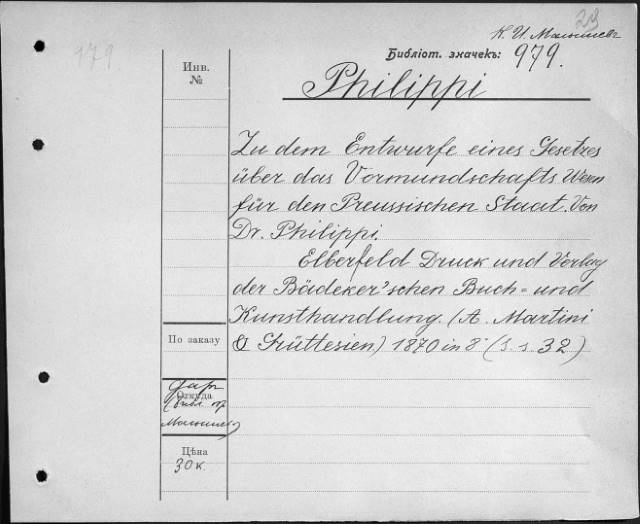 29
К. И. Малышевъ
179
Библіот. значекъ: 979.
Инв. №
Philippi
Zu dem Entwurfe eines Gesetzes
über das Vormundschafts Wesen
für den Preussischen Staat. Von
Dr. Philippi.
Elberfeld Druck und Verlag
der Bädeker'schen Buch- und
Kunsthandlung. (A. Martini
& Grüttefien) 1870 in 8° (S.s. 32)
По заказу
Даръ
Откуда
Малышева
Цѣна
30 к.